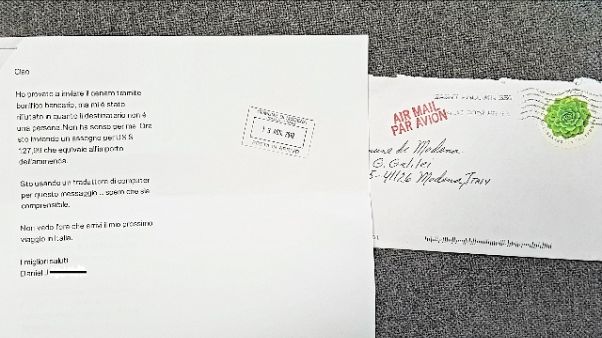 Ciao
Ho provato a inviare il denaro tramite
bonifico bancario, ma mi è stato
rifiutato in quanto il destinatario non è
una persona. Non ha senso per me. Ora
sto inviando un assegno per US $
127,99 che equivale all'importo
dell'ammenda.
Sto usando un traduttore di computer
per questo messaggio ... spero che sia
comprensibile.
Non vedo l'ora che arrivi il mio prossimo
viaggio in Italia.
I migliori saluti
Daniel J
AIR MAIL
PAR AVION
mune de Modena
G. Galilei
5-41126 Modena, ITALY